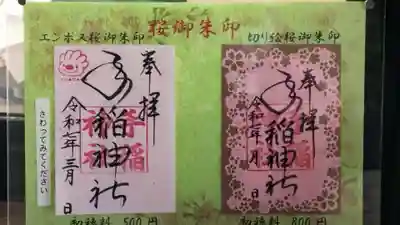 桜御朱印
エンボス桜御朱印
奉拝
稲神社
令和七年三月 日
さわってみてください
初穂料 500円
切り絵桜御朱印
奉拝
稲神社
令和七年 月 日
初穂料 800円